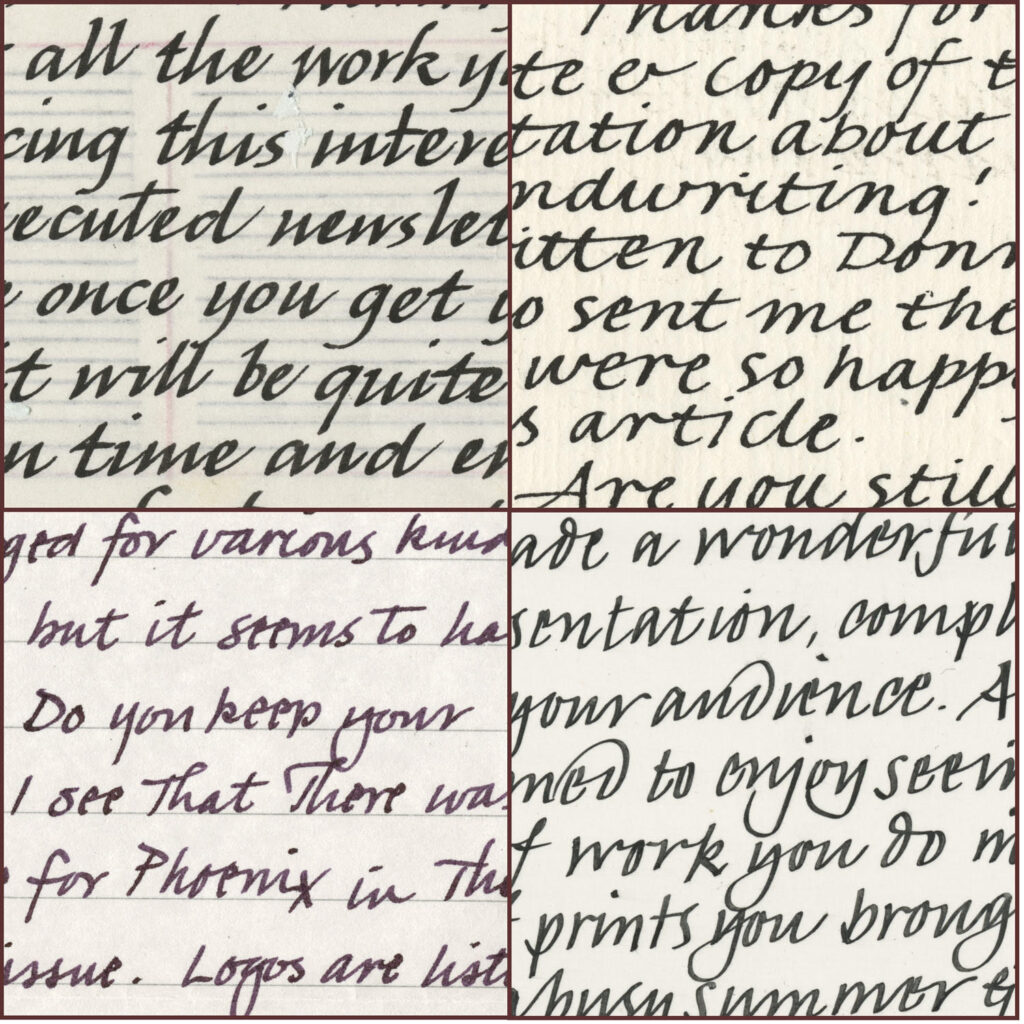 all the work y
cing this intere
ecuted newslet
once you get
t will be quite
u time and en
Thanks for
te & copy of t
tation about
ndwriting!
itten to Donn
o sent me the
were so happ
s article.
Are you still
ged for various kind
but it seems to ha
Do you keep your
I see that there wa
for Phoenix in The
issue. Logos are list
ade a wonderful
sentation, compl
your audience. A
ned to enjoy seein
f work you do in
prints you broug
busy summer &